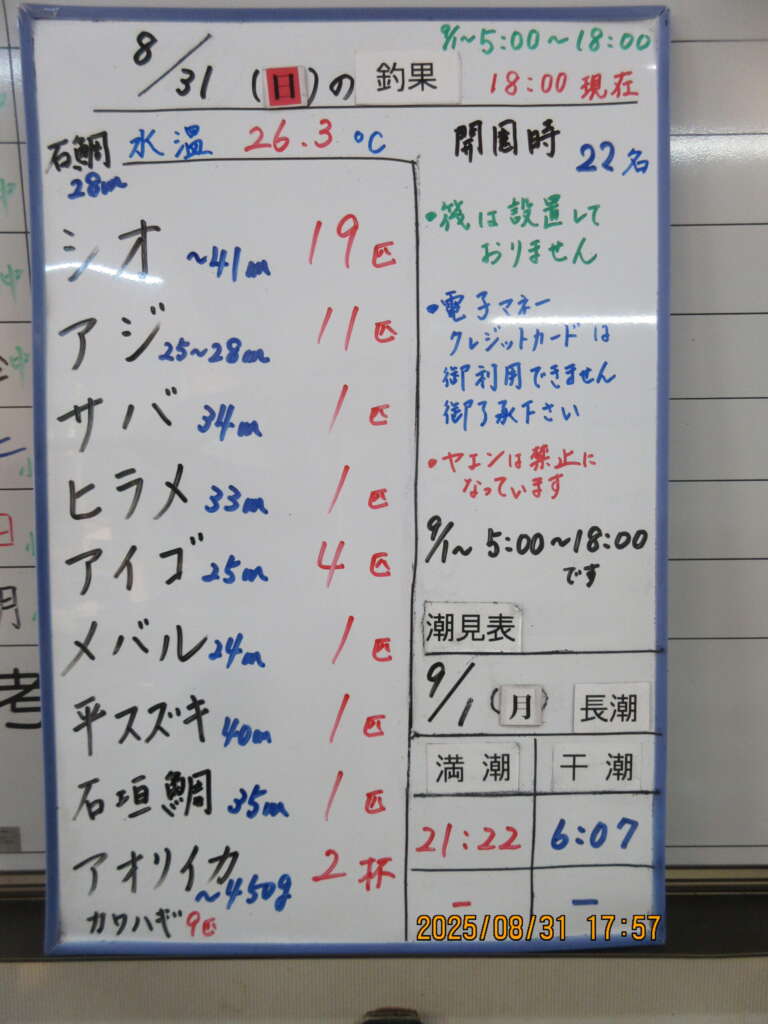 8/31 (日)の 釣果
9/1~5:00~18:00
18:00 現在
石鯛 28cm
水温 26.3℃
開園時 22名
シオ ~41cm 19匹
アジ 25~28cm 11匹
サバ 34cm 1匹
ヒラメ 33cm 1匹
アイゴ 25cm 4匹
メバル 24cm 1匹
平スズキ 40cm 1匹
石垣鯛 35cm 1匹
アオリイカ ~450g 2杯
カワハギ 9匹
・筏は設置して
おりません
・電子マネー
クレジットカードは
御利用できません
御了承下さい
・ヤエンは禁止に
なっています
9/1~ 5:00~18:00
です
潮見表
9/1 (月) 長潮
満潮 干潮
21:22 6:07
- -
2025/08/31 17:57